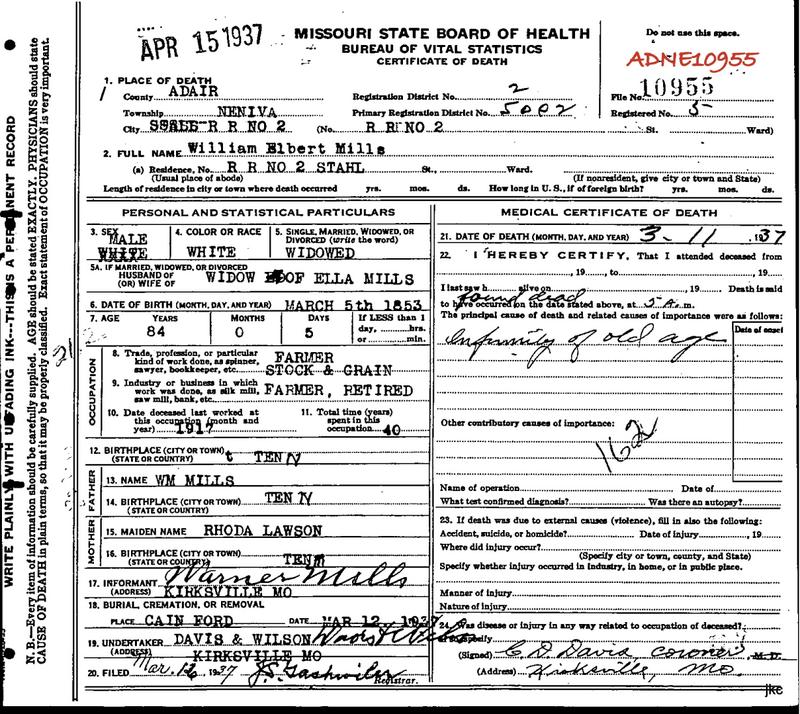 APR 15 1937
MISSOURI STATE BOARD OF HEALTH
BUREAU OF VITAL STATISTICS
CERTIFICATE OF DEATH
Do not use this space.
ADNE10955
10955
1. PLACE OF DEATH
County ADAIR
Registration District No. 2
File No.
Township NENIVA
Primary Registration District No. 5002
Registered No. 5
City R R NO 2 (No. R R NO 2 St. Ward)
2. FULL NAME William Elbert Mills
(a) Residence, No. R R NO 2 STAHL St., Ward.
(Usual place of abode) (If nonresident, give city or town and State)
Length of residence in city or town where death occurred yrs. mos. ds. How long in U.S., if of foreign birth? yrs. mos. ds.
PERSONAL AND STATISTICAL PARTICULARS
3. SEX MALE
WHITE
4. COLOR OR RACE
WHITE
5. SINGLE, MARRIED, WIDOWED, OR DIVORCED (write the word)
WIDOWED
5A. IF MARRIED, WIDOWED, OR DIVORCED
HUSBAND OF
(OR) WIFE OF WIDOW OF ELLA MILLS
6. DATE OF BIRTH (MONTH, DAY, AND YEAR) MARCH 5th 1853
7. AGE YEARS MONTHS DAYS If LESS than 1
day, hrs.
or min.
84 0 5
OCCUPATION
8. Trade, profession, or particular FARMER
kind of work done, as spinner,
sawyer, bookkeeper, etc. STOCK & GRAIN
9. Industry or business in which
work was done, as silk mill, FARMER, RETIRED
saw mill, bank, etc.
10. Date deceased last worked at
this occupation (month and
year) 1917
11. Total time (years)
spent in this
occupation 40
12. BIRTHPLACE (CITY OR TOWN) TENN
(STATE OR COUNTRY)
FATHER
13. NAME WM MILLS
14. BIRTHPLACE (CITY OR TOWN) TENN
(STATE OR COUNTRY)
MOTHER
15. MAIDEN NAME RHODA LAWSON
16. BIRTHPLACE (CITY OR TOWN)
(STATE OR COUNTRY) TENN
17. INFORMANT Warner Mills
(ADDRESS) KIRKSVILLE MO
18. BURIAL, CREMATION, OR REMOVAL
PLACE CAIN FORD DATE MAR 12, 1937
19. UNDERTAKER DAVIS & WILSON
(ADDRESS) KIRKSVILLE MO
20. FILED Mar. 1937
Registrar.
MEDICAL CERTIFICATE OF DEATH
21. DATE OF DEATH (MONTH, DAY, AND YEAR) 3-11, 1937
22. I HEREBY CERTIFY, That I attended deceased from
, 19 , to , 19
I last saw h alive on , 19 Death is said
found dead
to have occurred on the date stated above, at 5 A. m.
The principal cause of death and related causes of importance were as follows:
Date of onset
Infirmity of old age
Other contributory causes of importance:
Name of operation Date of
What test confirmed diagnosis? Was there an autopsy?
23. If death was due to external causes (violence), fill in also the following:
Accident, suicide, or homicide? Date of injury , 19
Where did injury occur?
(Specify city or town, county, and State)
Specify whether injury occurred in industry, in home, or in public place.
Manner of injury
Nature of injury
24. Was disease or injury in any way related to occupation of deceased?
(Signed) C. D. Davis, coroner M.D.
(Address) Kirksville, Mo.
WRITE PLAINLY WITH UNFADING INK---THIS IS A PERMANENT RECORD
N. B.—Every item of information should be carefully supplied. AGE should be stated EXACTLY. PHYSICIANS should state
CAUSE OF DEATH in plain terms, so that it may be properly classified. Exact statement of OCCUPATION is very important.
jkc